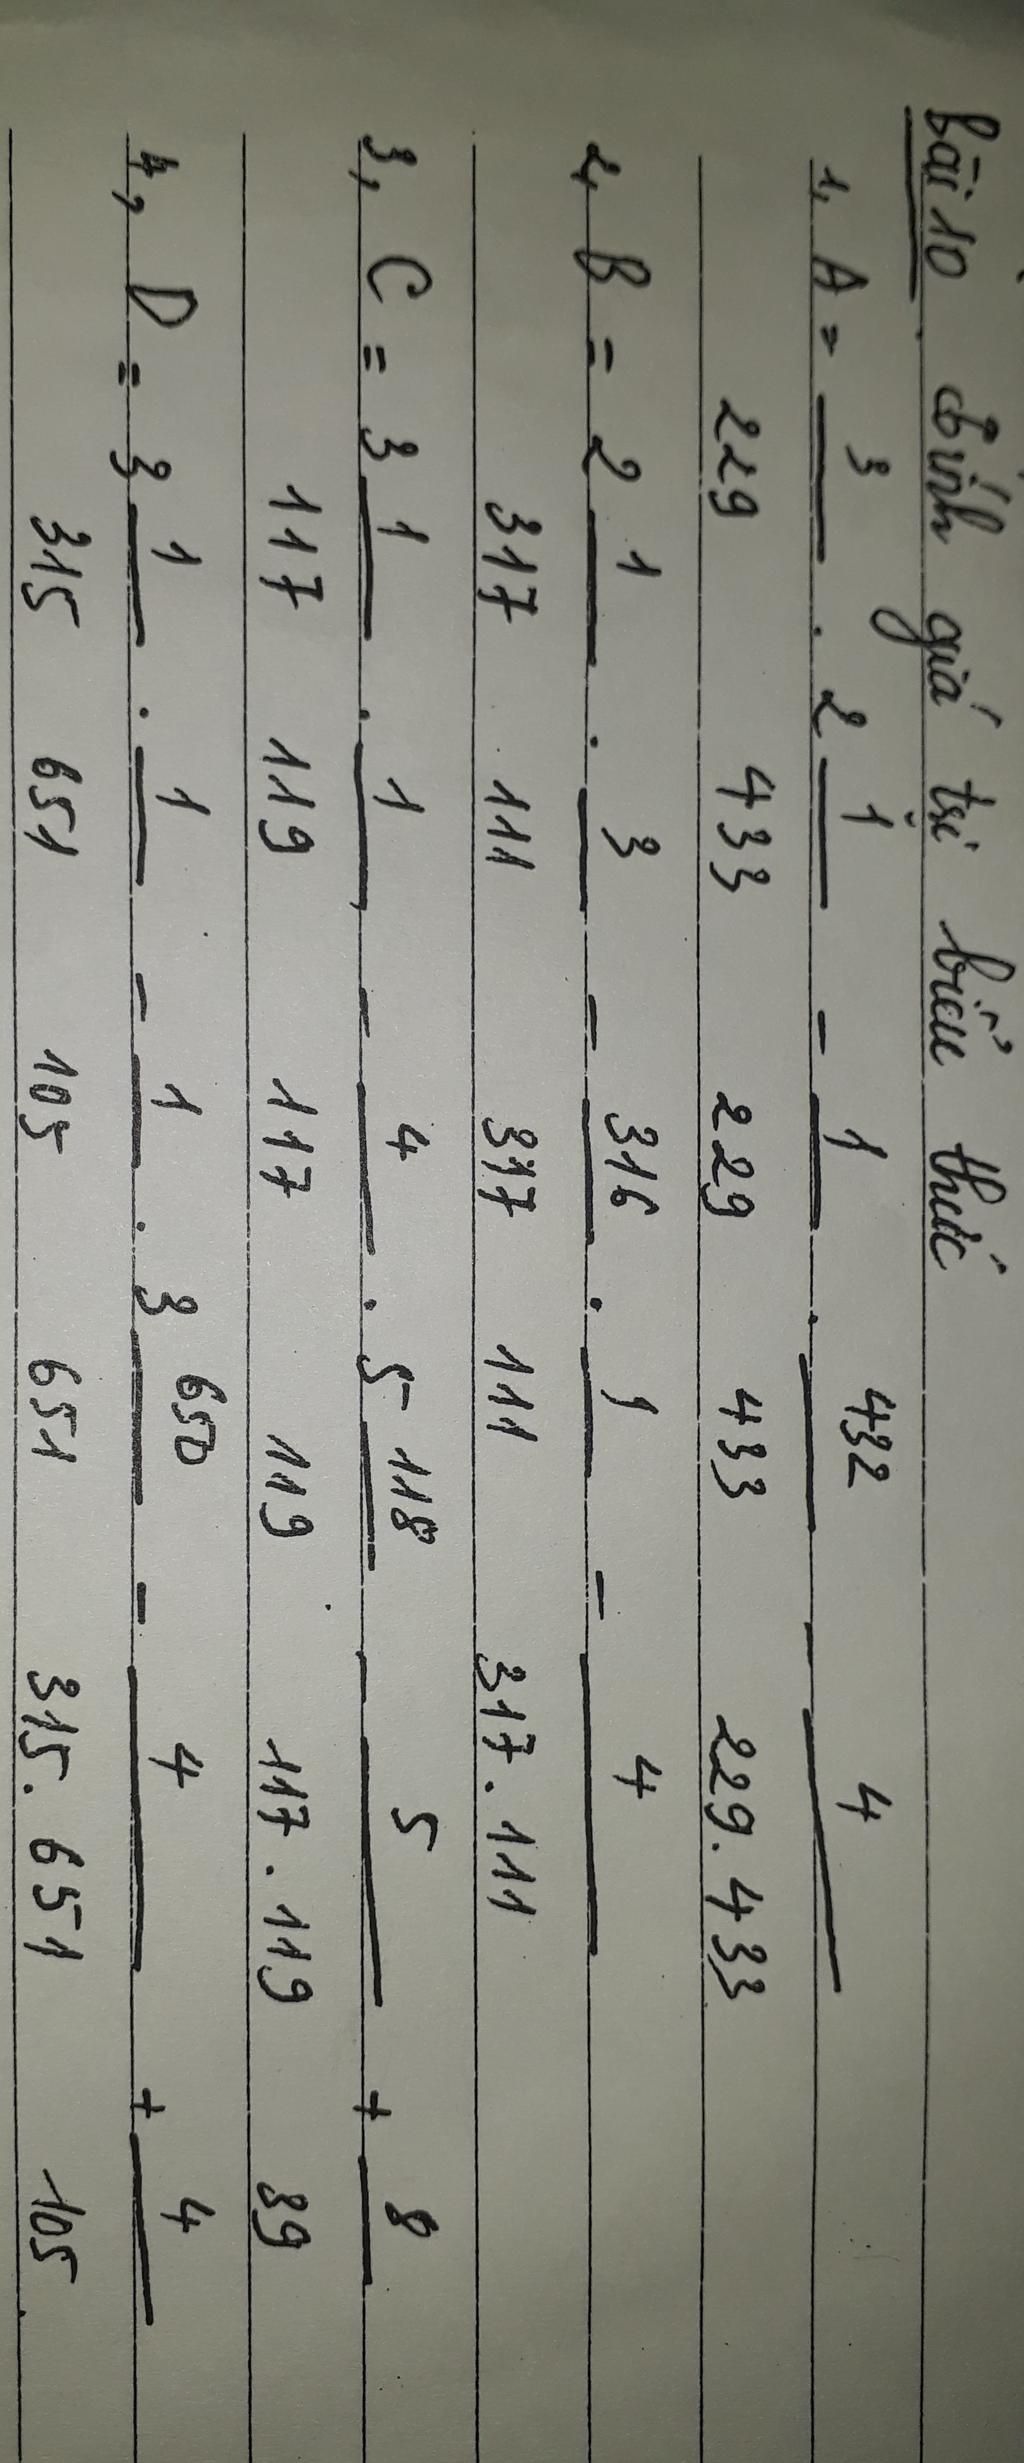 Bài 10. Tính giá trị biểu thức
1, A = 3/229 . 2 1/433 - 1/229 . 432/433 - 4/229.433
2, B = 2 1/317 . 3/111 - 316/317 . 1/111 - 4/317.111
3, C = 3 1/117 . 1/119 - 4/117 . 5 118/119 - 5/117.119 + 8/39
4, D = 3 1/315 . 1/651 - 1/105 . 3 650/651 - 4/315.651 + 4/105